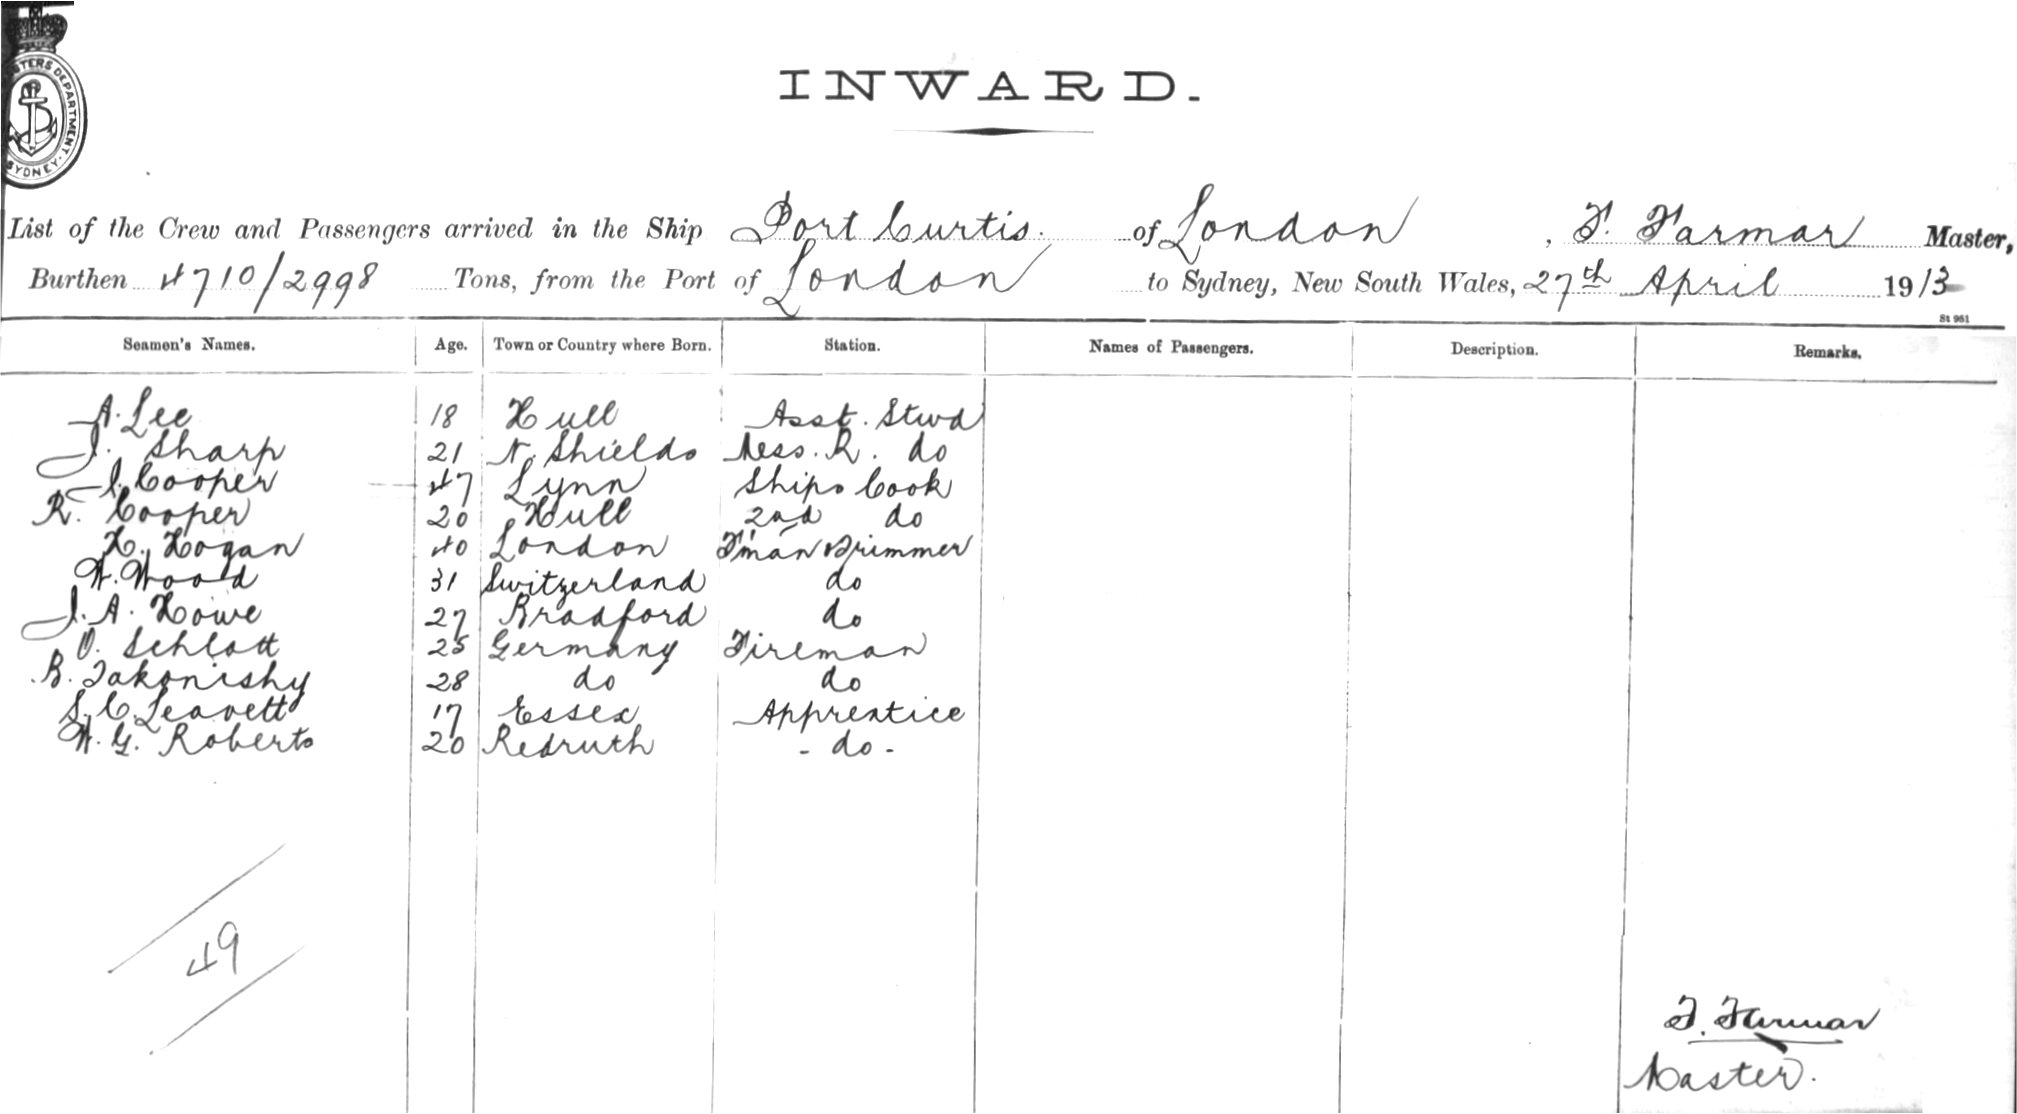 STERS DEPARTMENT. SYDNEY.
INWARD.
List of the Crew and Passengers arrived in the Ship Port Curtis. of London, F. Farmar Master,
Burthen 4710/2998 Tons, from the Port of London to Sydney, New South Wales, 27th April 1913
St 961
Seamen's Names. Age. Town or Country where Born. Station. Names of Passengers. Description. Remarks.
A. Lee 18 Hull Asst. Stwd
J. Sharp 21 N. Shields Mess. R. do
J. Cooper 47 Lynn Ships Cook
R. Cooper 20 Hull 2nd do
H. Hogan 40 London F'man &
W. Wood 31 Switzerland do
J. A. Howe 27 Bradford do
O. Schlott 25 Germany Fireman
B. Takonishy 28 do do
S. C. Leavett 17 Essex Apprentice
W. G. Roberts 20 Redruth - do -
49
F. Farmar
Master.